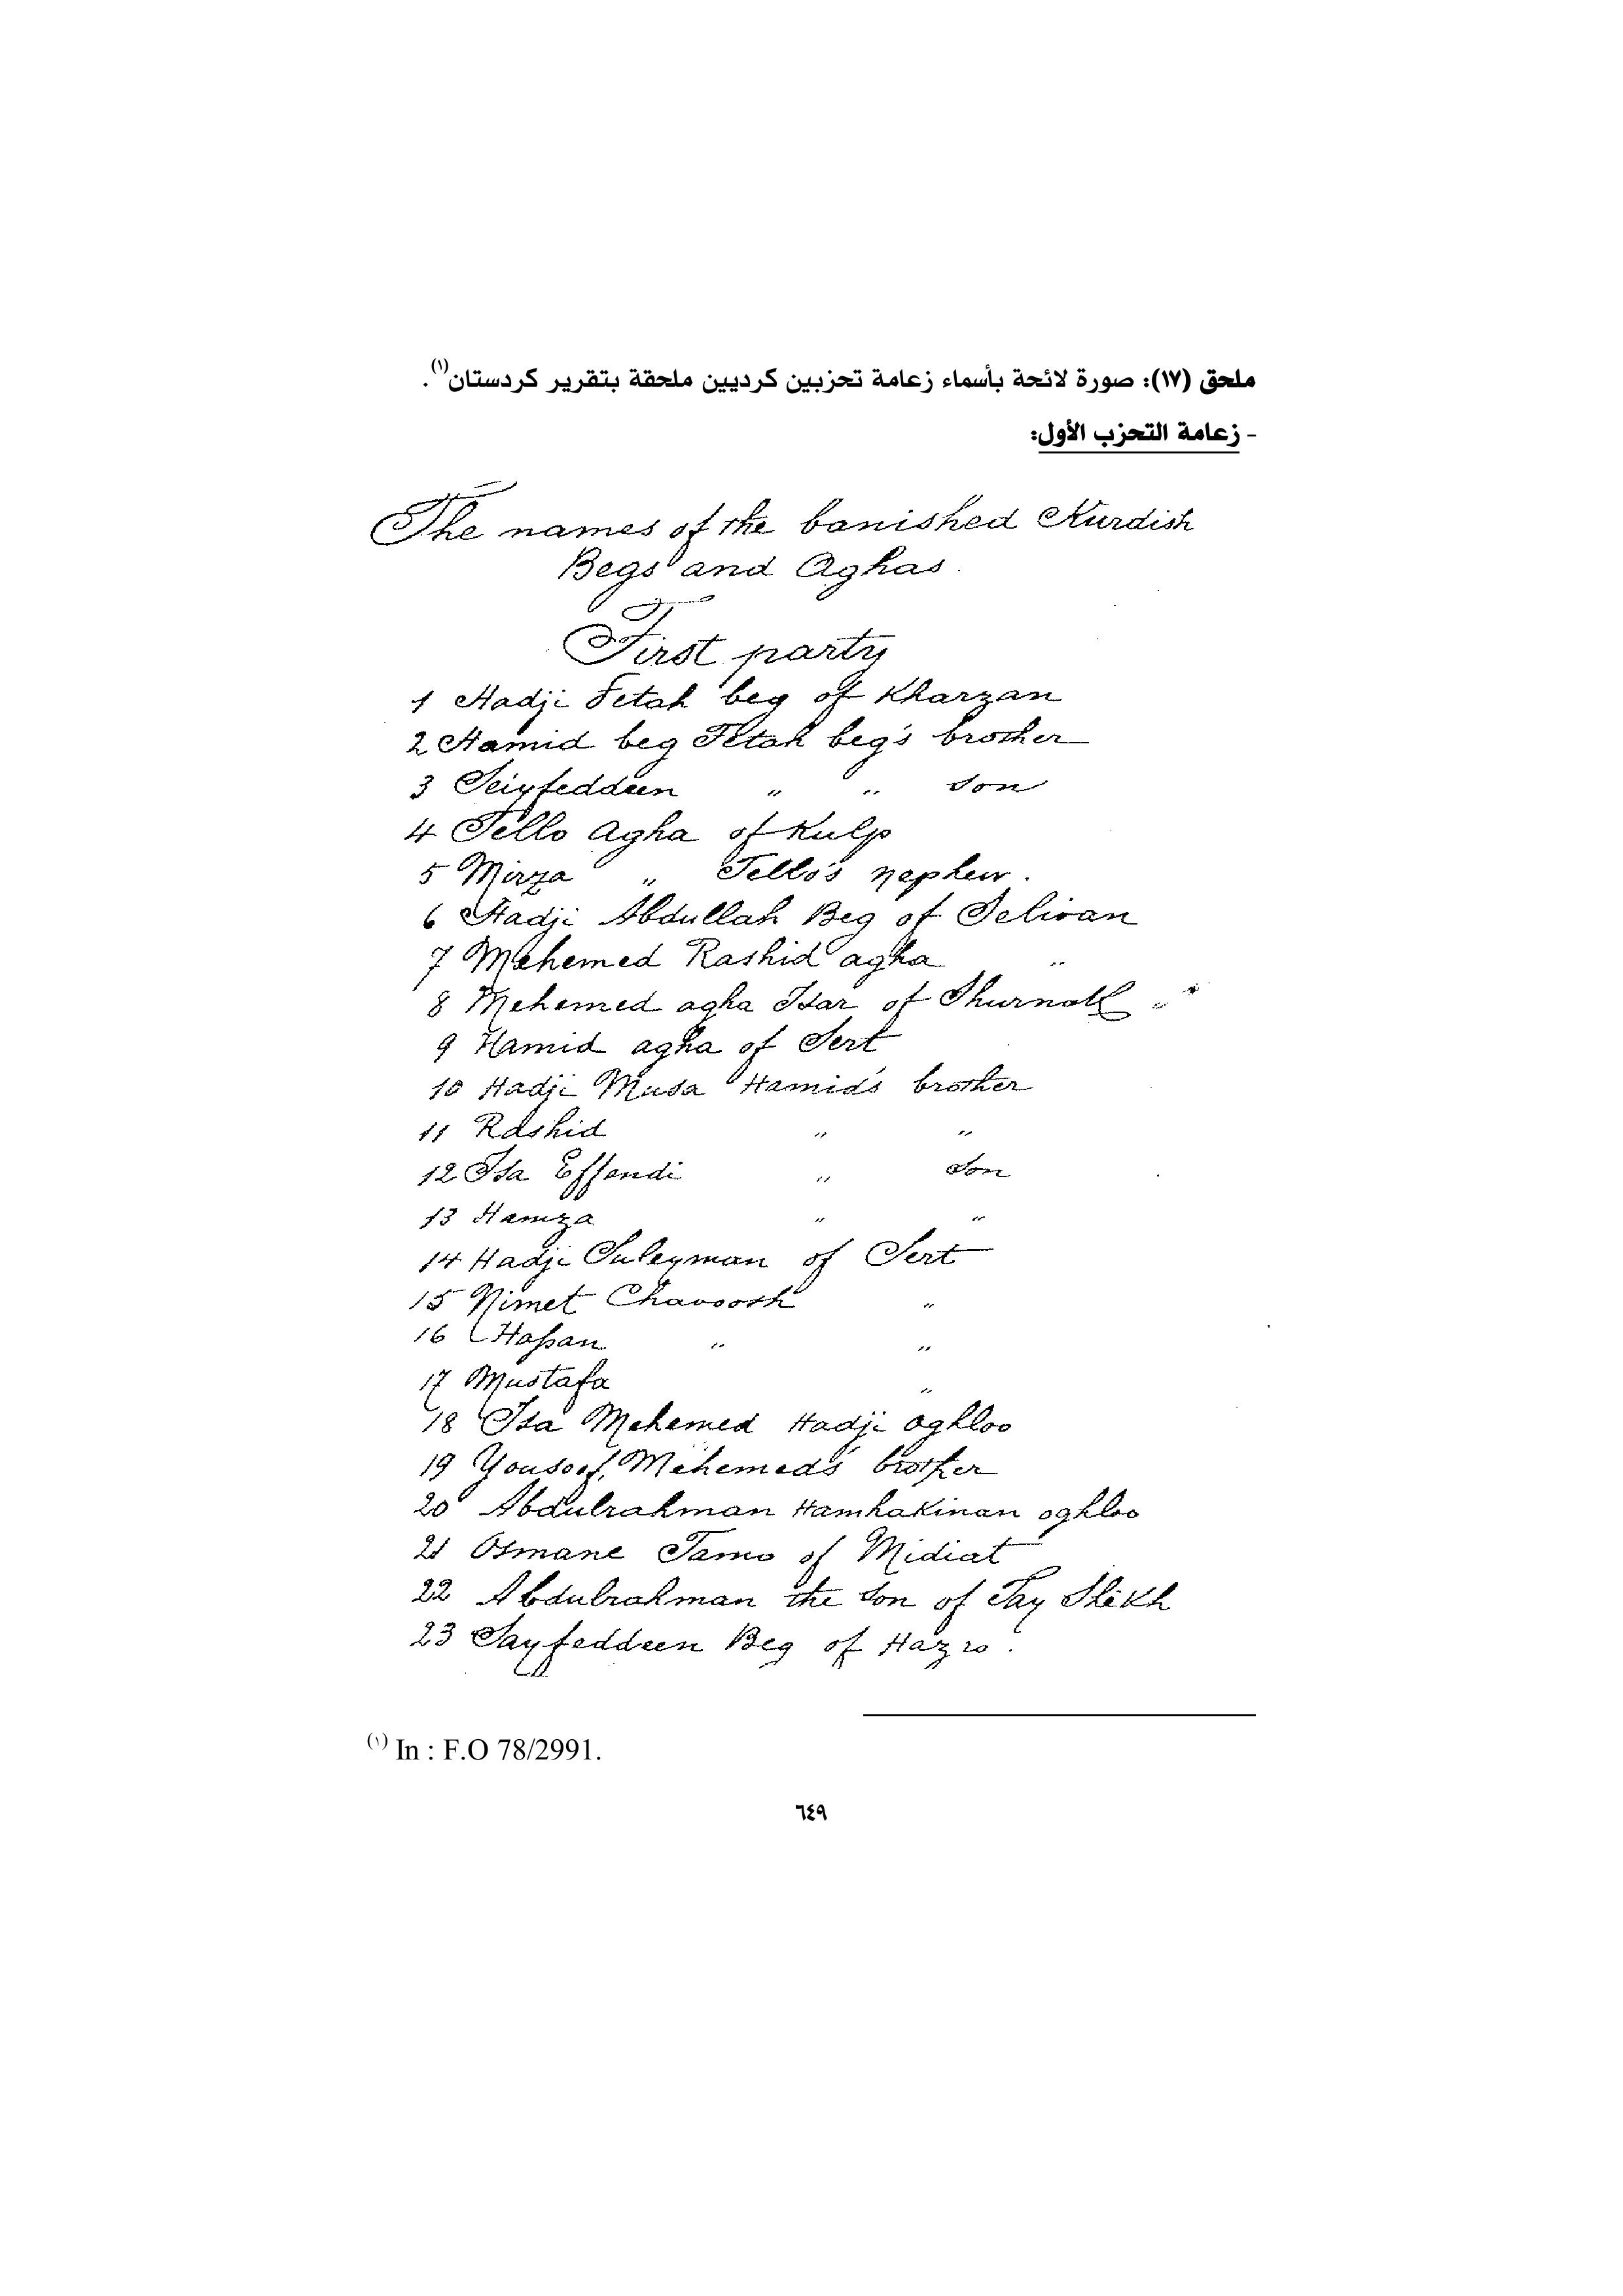 ملحق (١٧): صورة لائحة بأسماء زعامة تحزبين كرديين ملحقة بتقرير كردستان(١).
- زعامة التحزب الأول:
The names of the banished Kurdish
Begs and Aghas.
First party
1 Hadji Fetah beg of Kharzan
2 Hamid beg Fetah beg's brother
3 Seiyfeddeen " " Son
4 Tello Agha of Kulp
5 Mirza " Tello's nephew.
6 Hadji Abdullah Beg of Selivan
7 Mehemed Rashid agha "
8 Mehemed agha Isar of "
9 Hamid agha of Sert
10 Hadji Musa Hamid's brother
11 Rashid " "
12 Isa Effendi " Son
13 Hamza " "
14 Hadji Suleyman of Sert
15 Nimet Chavoosh "
16 Hassan " "
17 Mustafa "
18 Isa Mehemed Hadji oghloo
19 Yousoof, Mehemed's brother
20 Abdulrahman Hamhakinan oghloo
21 Osmane Tamo of Midiat
22 Abdulrahman the Son of Tay Sheikh
23 Sayfeddeen Beg of Hazro.
(١) In : F.O 78/2991.
٦٤٩